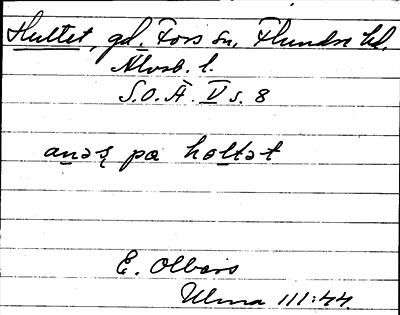 Hultet, gd. Fors sn. Flundre hd.
Älvsb. l.
S.O.Ä. V s. 8
anəʂ pɑ holtət
E. Olbers
Ulma 111:44